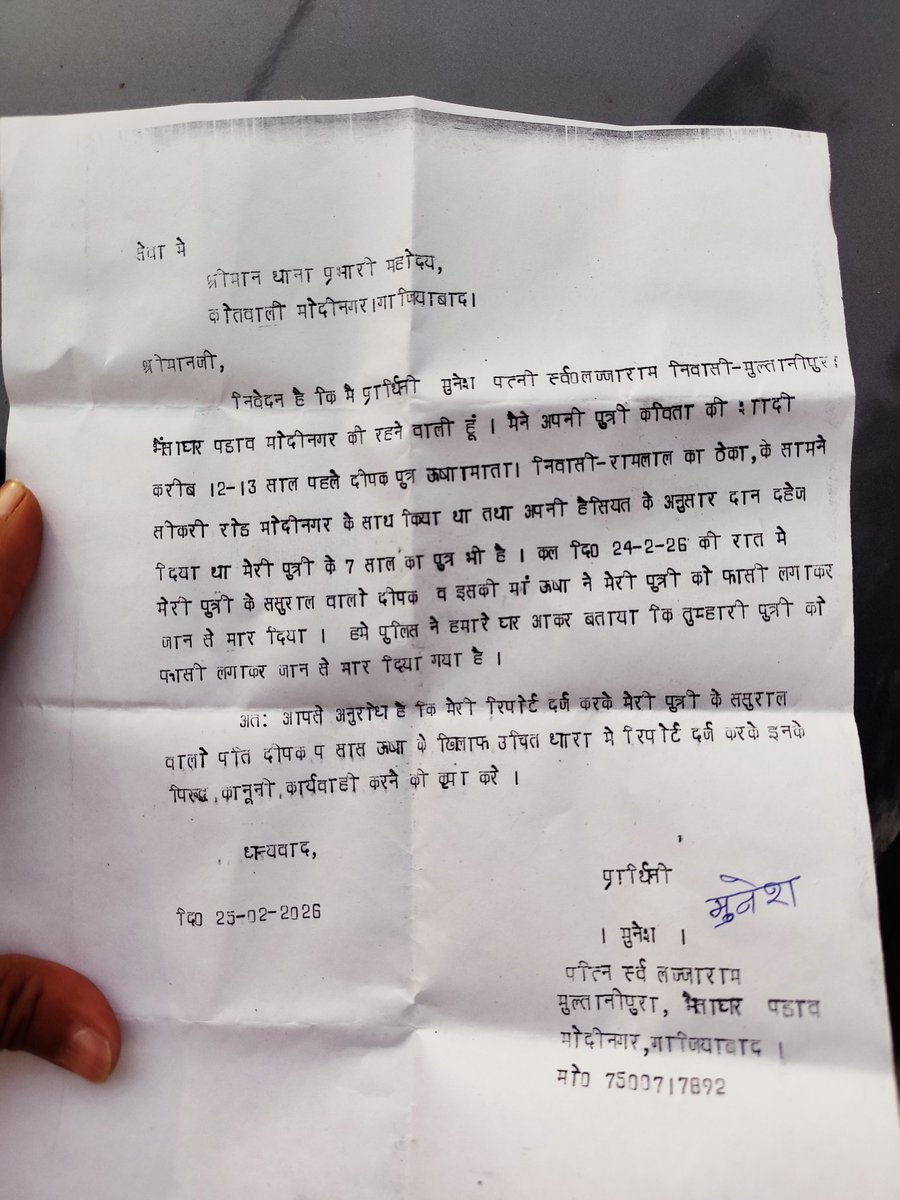 सेवा मे
श्रीमान थाना प्रभारी महोदय,
कोतवाली मोदीनगर।गाजियाबाद।
श्रीमानजी,
निवेदन है कि मै प्रार्थिनी मुनेश पत्नी स्र्व0लज्जाराम निवासी-मुल्तानीपुरा
भैंसाघर पडाव मोदीनगर की रहने वाली हूं । मैने अपनी पुत्री कविता की शादी
करीब 12-13 साल पहले दीपक पुत्र ऊषा।माता। निवासी-रामलाल का ठेका,के सामने
सीकरी रोड मोदीनगर के साथ किया था तथा अपनी हैसियत के अनुसार दान दहेज
दिया था मेरी पुत्री के 7 साल का पुत्र भी है । कल दि0 24-2-26 की रात मे
मेरी पुत्री के ससुराल वालो दीपक व इसकी मां ऊषा ने मेरी पुत्री को फासी लगाकर
जान से मार दिया । हमे पुलिस ने हमारे घर आकर बताया कि तुम्हारी पुत्री को
फासी लगाकर जान से मार दिया गया है ।
अत: आपसे अनुरोध है कि मेरी रिपोर्ट दर्ज करके मेरी पुत्री के ससुराल
वालो पति दीपक प सास ऊषा के खिलाफ उचित धारा मे रिपोर्ट दर्ज करके इनके
विरूद्ध कानूनी कार्यवाही करने की कृपा करे ।
धन्यवाद,
प्रार्थिनी
मुनेश
दि0 25-02-2026
। मुनेश ।
पत्नि स्र्व लज्जाराम
मुल्तानीपुरा, भैसाघर पडाव
मोदीनगर,गाजियाबाद ।
मो0 7500717892